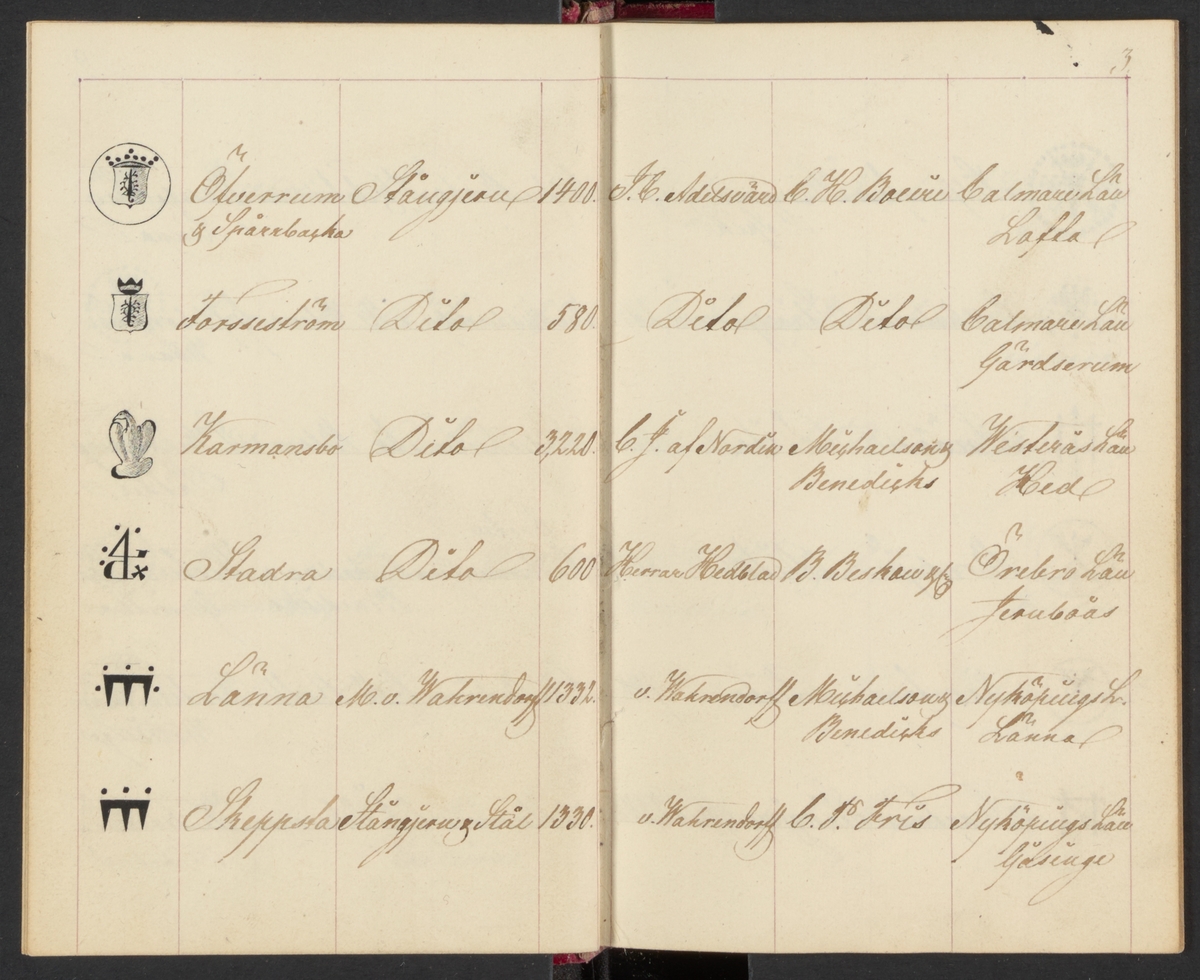 3
Öfverrum Stångjern 1400. J. C. Adelsvärd C. H. Calmare Län
& Spårrbacka Lofta
Forsseström Dito 580. Dito Dito Calmare Län
Gärdserum
Karmansbo Dito 3,220. C. J. af Nordin Michaelson &
Benedicks Westerås Län
Hed
Stadra Dito 600 Herrar Hedblad B. Beskow & Co Örebro Län
Jernboås
Länna M. v. Wahrendorff 1332. v. Wahrendorff Michaelson & Nyköpings L.
Benedicks Länna
Skeppsta Stångjern & Stål 1330. v. Wahrendorff C. Fris Nyköpings Län
Gåsinge